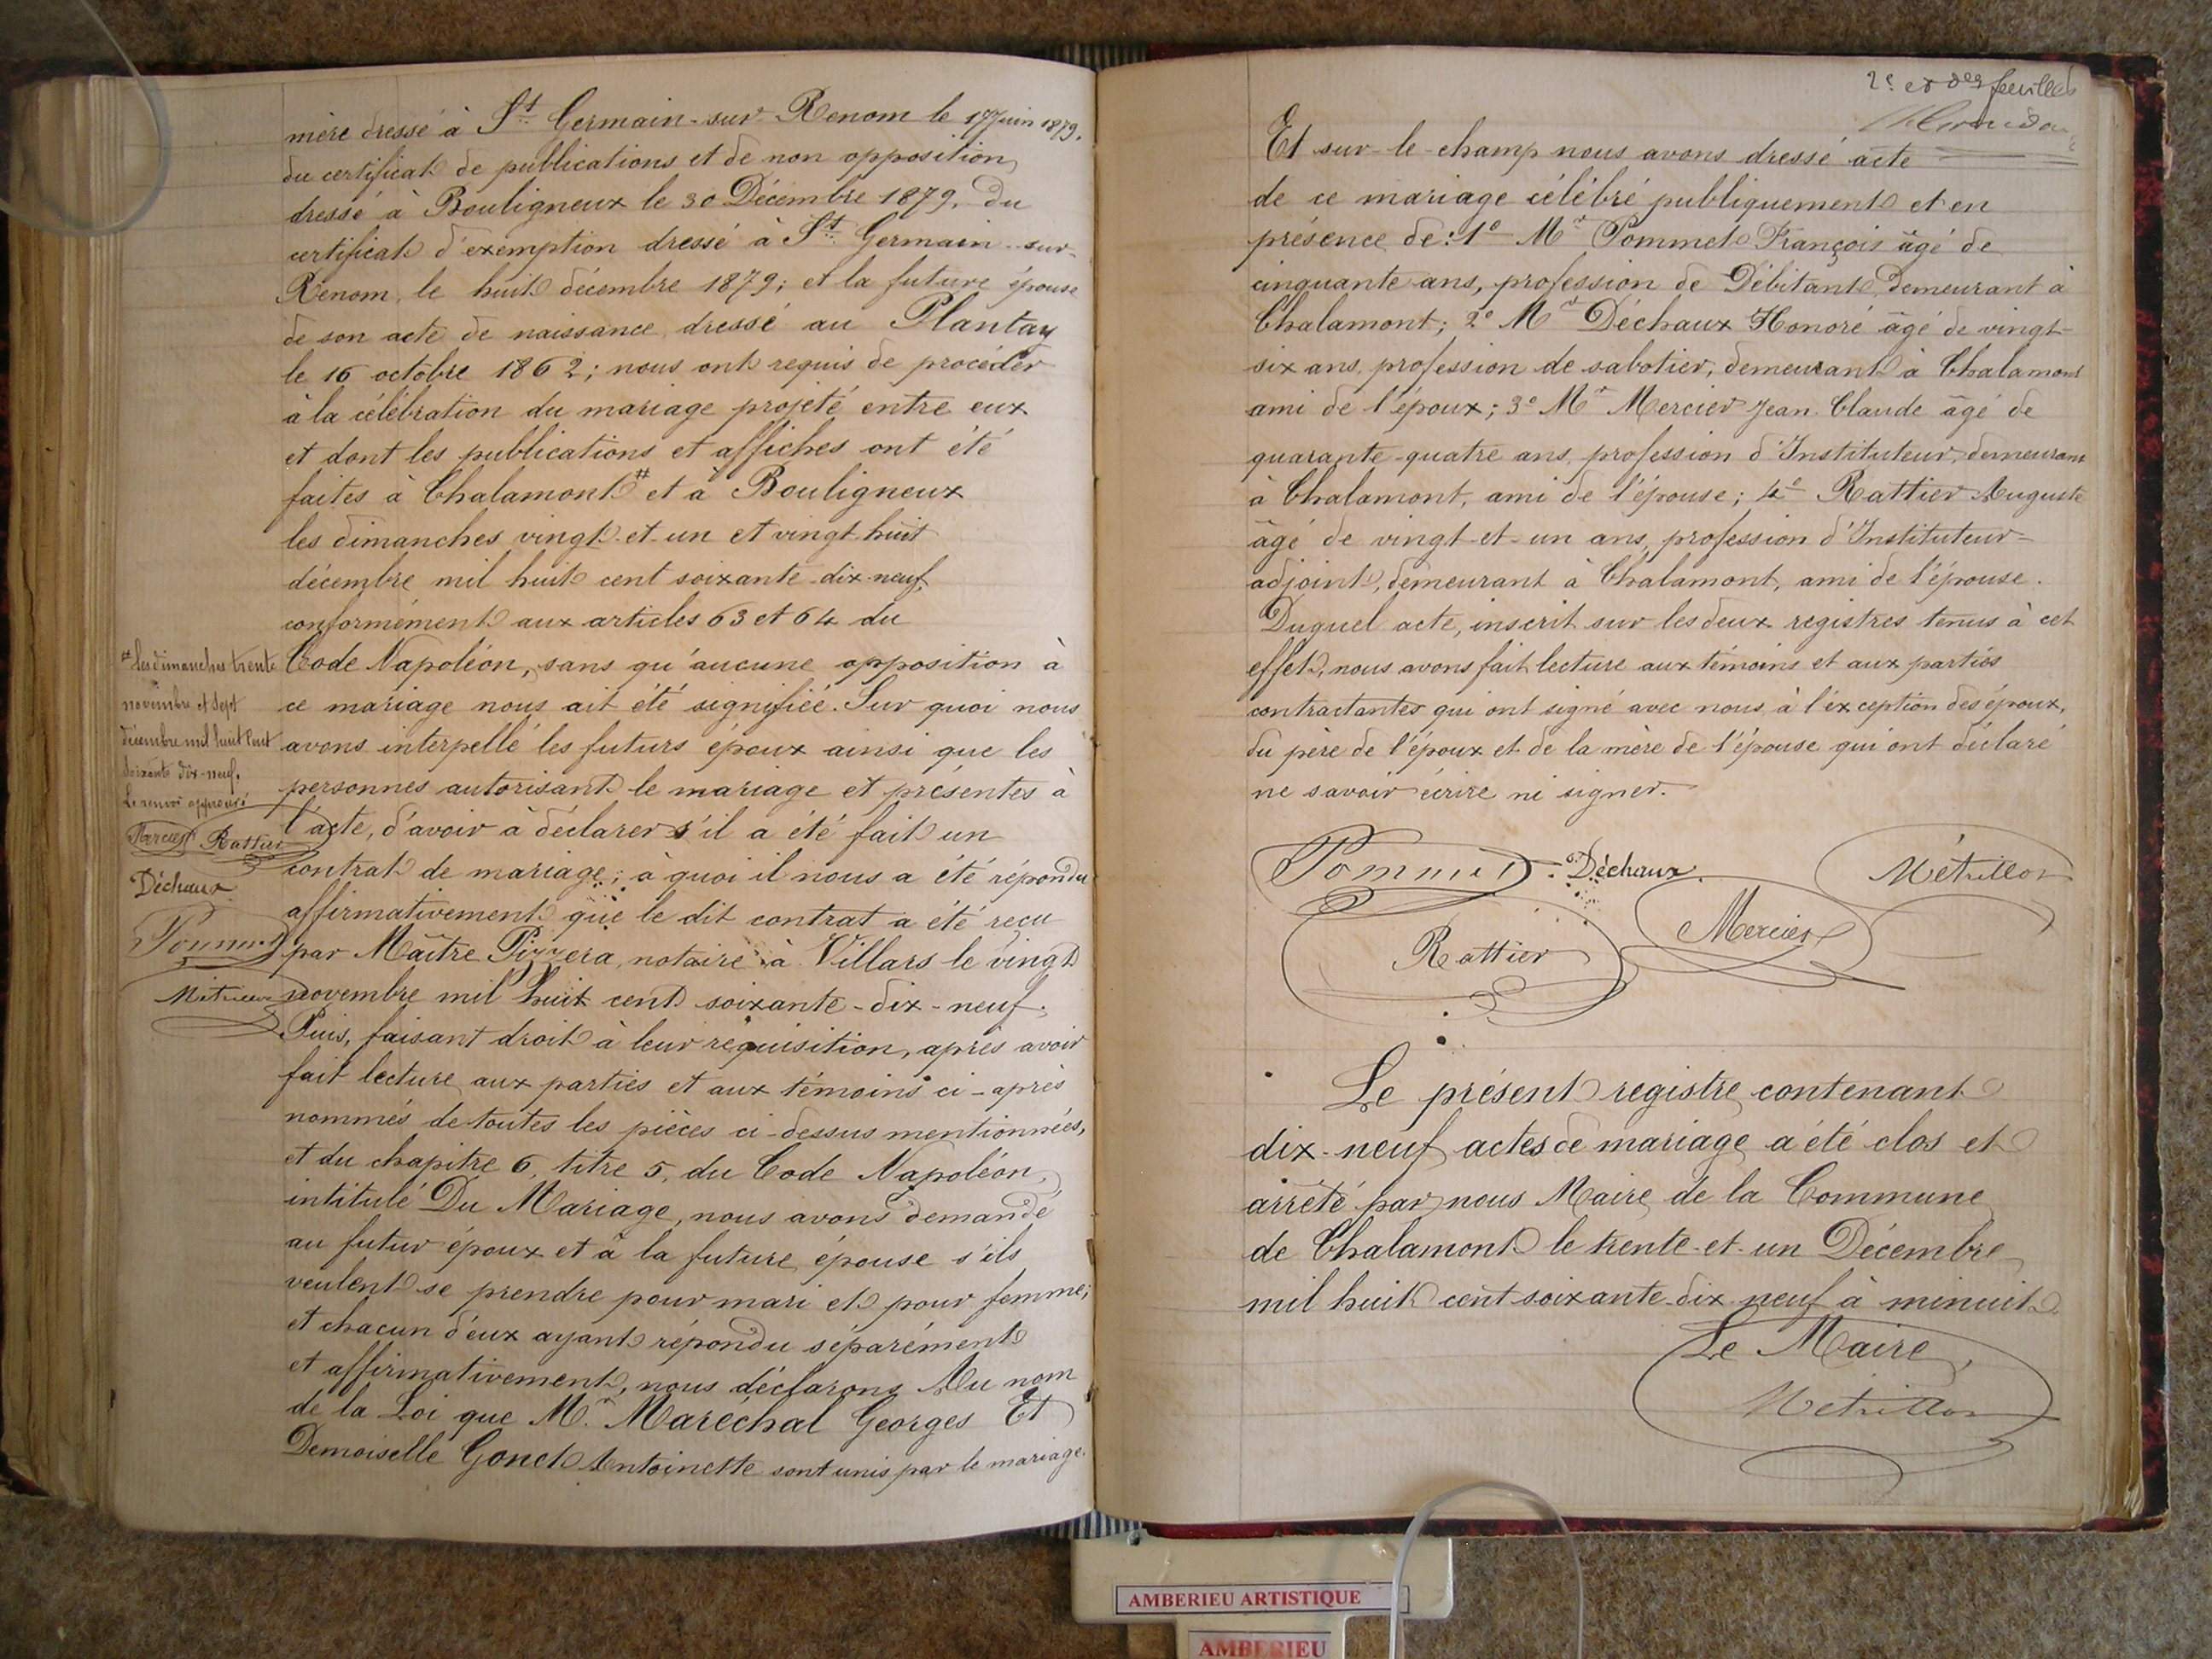 mère dressé à St Germain-sur-Renom le 17 Juin 1879.
du certificat de publications et de non opposition
dressé à Bouligneux le 30 Décembre 1879. Du
certificat d'exemption dressé à St Germain-sur-
Renom, le huit décembre 1879; et la future épouse
de son acte de naissance dressé au Plantay
le 16 octobre 1862; nous ont requis de procéder
à la célébration du mariage projeté entre eux
et dont les publications et affiches ont été
faites à Chalamont # et à Bouligneux
les dimanches vingt-et-un et vingt huit
décembre mil huit cent soixante-dix-neuf,
conformément aux articles 63 et 64 du
Code Napoléon, sans qu'aucune opposition à
ce mariage nous ait été signifiée. Sur quoi nous
avons interpellé les futurs époux ainsi que les
personnes autorisant le mariage et présentes à
l'acte, d'avoir à déclarer s'il a été fait un
contrat de mariage; à quoi il nous a été répondu
affirmativement que le dit contrat a été reçu
par Maître Pizzera, notaire à Villars le vingt
novembre mil huit cent soixante-dix-neuf.
Puis, faisant droit à leur réquisition, après avoir
fait lecture aux parties et aux témoins ci-après
nommés de toutes les pièces ci-dessus mentionnées,
et du chapitre 6, titre 5, du Code Napoléon,
intitulé Du Mariage, nous avons demandé
au futur époux et à la future épouse s'ils
veulent se prendre pour mari et pour femme;
et chacun d'eux ayant répondu séparément
et affirmativement, nous déclarons Au nom
de la Loi que Mr Maréchal Georges Et
Demoiselle Gonet Antoinette sont unis par le mariage.
# les dimanches trente
novembre et sept
décembre mil huit cent
soixante dix-neuf.
Le renvoi approuvé
Mercier Rattier
Déchaux
Pommet
Métrillon
2e et der feuillet
Et sur-le-champ nous avons dressé acte
de ce mariage célébré publiquement et en
présence de: 1° Mr Pommet François âgé de
cinquante ans, profession de Débitant, demeurant à
Chalamont; 2° Mr Déchaux Honoré âgé de vingt-
six ans, profession de sabotier, demeurant à Chalamont
ami de l'époux; 3° Mr Mercier Jean Claude âgé de
quarante-quatre ans, profession d'Instituteur, demeurant
à Chalamont, ami de l'épouse; 4° Rattier Auguste
âgé de vingt-et-un ans, profession d'Instituteur-
adjoint, demeurant à Chalamont, ami de l'épouse.
Duquel acte, inscrit sur les deux registres tenus à cet
effet, nous avons fait lecture aux témoins et aux parties
contractantes qui ont signé avec nous à l'exception des époux,
du père de l'époux et de la mère de l'épouse qui ont déclaré
ne savoir écrire ni signer.
Pommet Déchaux Métrillon
Rattier Mercier
Le présent registre contenant
dix-neuf actes de mariage a été clos et
arrêté par nous Maire de la Commune
de Chalamont le trente-et-un Décembre
mil huit cent soixante-dix-neuf à minuit.
Le Maire,
Métrillon
AMBERIEU ARTISTIQUE
AMBERIEU